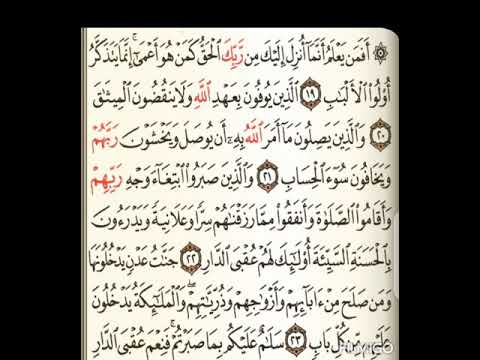 ۞ أَفَمَن يَعْلَمُ أَنَّمَآ أُنزِلَ إِلَيْكَ مِن رَّبِّكَ ٱلْحَقُّ كَمَنْ هُوَ أَعْمَىٰٓ ۚ إِنَّمَا يَتَذَكَّرُ
أُو۟لُوا۟ ٱلْأَلْبَٰبِ ١٩ ٱلَّذِينَ يُوفُونَ بِعَهْدِ ٱللَّهِ وَلَا يَنقُضُونَ ٱلْمِيثَٰقَ
٢٠ وَٱلَّذِينَ يَصِلُونَ مَآ أَمَرَ ٱللَّهُ بِهِۦٓ أَن يُوصَلَ وَيَخْشَوْنَ رَبَّهُمْ
وَيَخَافُونَ سُوٓءَ ٱلْحِسَابِ ٢١ وَٱلَّذِينَ صَبَرُوا۟ ٱبْتِغَآءَ وَجْهِ رَبِّهِمْ
وَأَقَامُوا۟ ٱلصَّلَوٰةَ وَأَنفَقُوا۟ مِمَّا رَزَقْنَٰهُمْ سِرًّا وَعَلَانِيَةً وَيَدْرَءُونَ
بِٱلْحَسَنَةِ ٱلسَّيِّئَةَ أُو۟لَٰٓئِكَ لَهُمْ عُقْبَى ٱلدَّارِ ٢٢ جَنَّٰتُ عَدْنٍ يَدْخُلُونَهَا
وَمَن صَلَحَ مِنْ ءَابَآئِهِمْ وَأَزْوَٰجِهِمْ وَذُرِّيَّٰتِهِمْ ۖ وَٱلْمَلَٰٓئِكَةُ يَدْخُلُونَ
عَلَيْهِم مِّن كُلِّ بَابٍ ٢٣ سَلَٰمٌ عَلَيْكُم بِمَا صَبَرْتُمْ ۚ فَنِعْمَ عُقْبَى ٱلدَّارِ